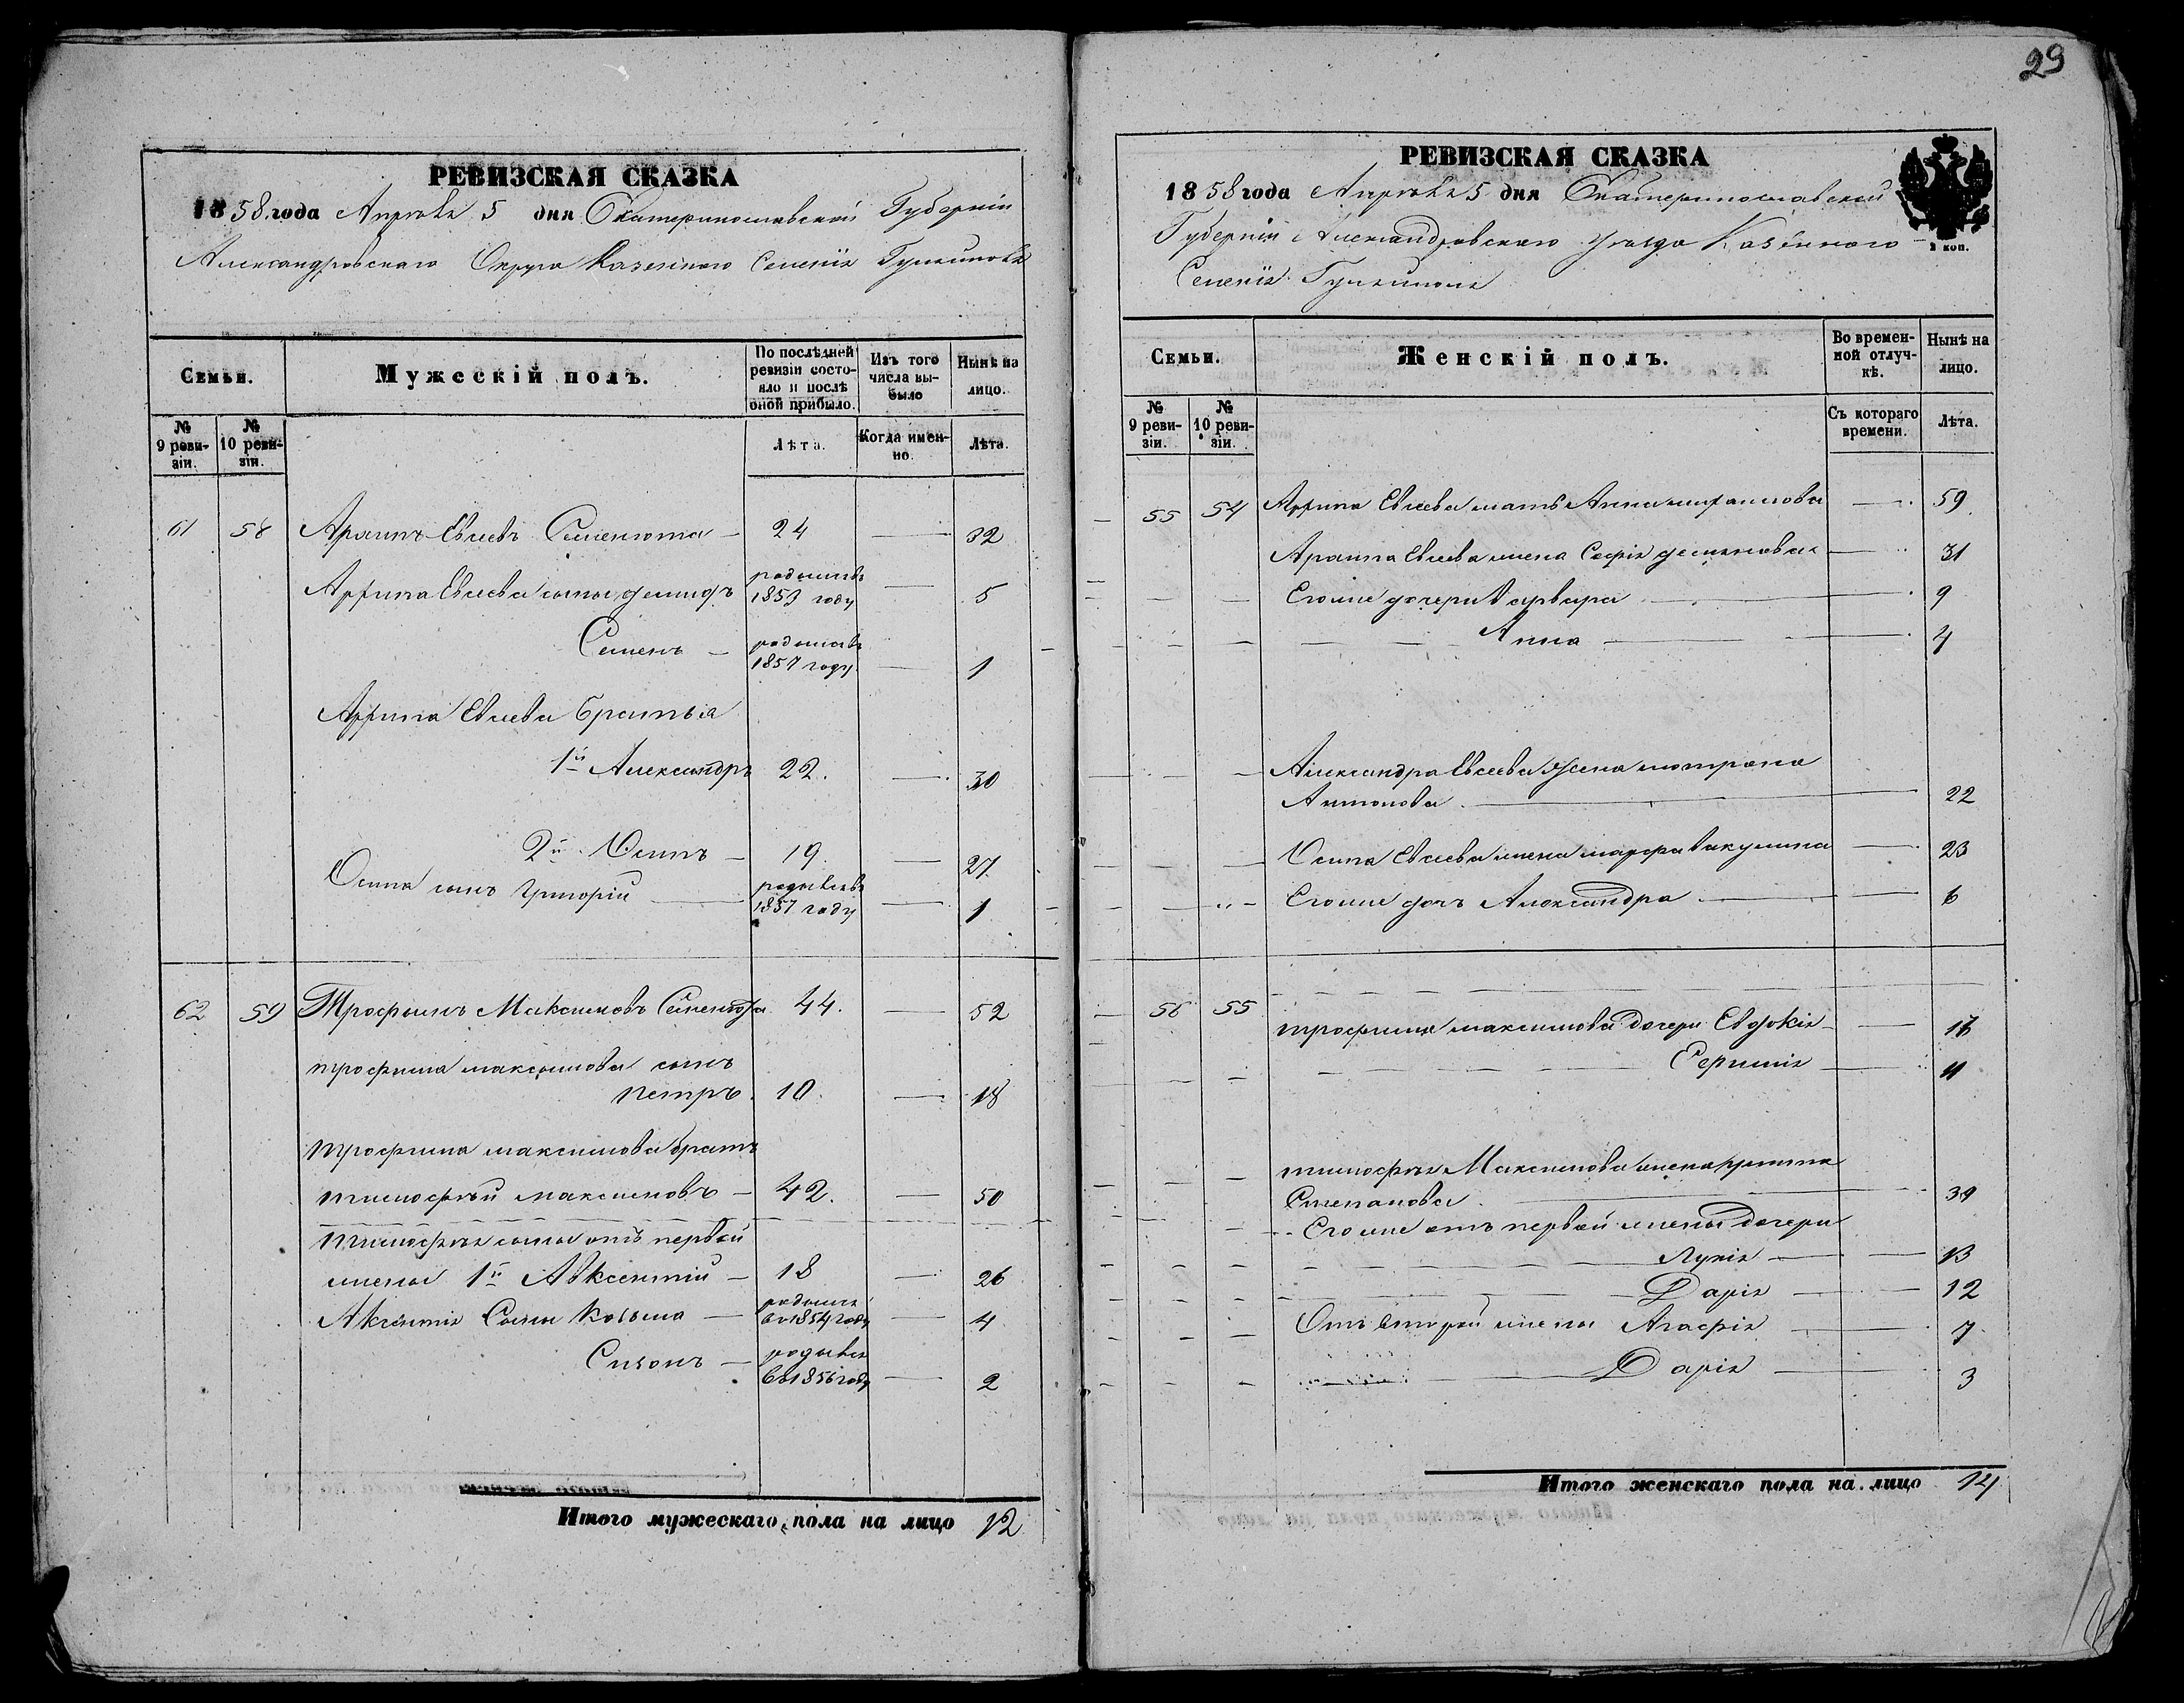 29
РЕВИЗСКАЯ СКАЗКА
1858 года Апрѣля 5 дня Екатеринославской Губерніи
Александровскаго Округа Казеннаго Селенія Гуляйполя
Семьи.
Мужескій полъ.
По послѣдней ревизіи состояло и послѣ оной прибыло.
Изъ того числа выбыло
Нынѣ на лицо.
№ 9 ревизіи.
№ 10 ревизіи.
Лѣта.
Когда именно.
Лѣта.
61 58 Архипъ Евсеевъ Семенюта — 24 — 32
Архипа Евсеева сыны Демидъ родился въ 1853 году — 5
Семенъ — родился въ 1857 году — 1
Архипа Евсеева братья
1й Александръ 22. — 30
2й Осипъ — 19. — 27
Осипа сынъ Григорій — родывся въ 1857 году — 1
62 59 Трофимъ Максимовъ Семенюта 44. — 52
трофима максимова сынъ
петръ. 10. — 18
трофима максимова братъ
тимофѣй максимовъ — 42. — 50
Тимофѣя сыны отъ первой
жены 1й Авксентій — 18 — 26
Аксентія Сыны Козьма — родился въ 1854 году — 4
Сизонъ — родывся въ 1856 году — 2
Итого мужескаго пола на лицо 12
РЕВИЗСКАЯ СКАЗКА
1858 года Апрѣля 5 дня Екатеринославской
Губерніи Александровскаго уѣзда Казённаго
Селенія Гуляйполя
1 коп.
Семьи.
Женскій полъ.
Во временной отлучкѣ.
Нынѣ на лицо.
№ 9 ревизіи.
№ 10 ревизіи.
Съ котораго времени.
Лѣта.
55 54 Архипа Евсеева мать Анна — 59.
Архипа Евсеева жена Софія — 31
Его же дочери Варвара — 9
Анна — 4
Александра Евсеева жена мотрона
Антонова. — 22
Осипа Евсеева жена марфа вакулина — 23
Его же дочь Александра — 6
56 55 трофима максимова дочери Евдокія — 17
— 11
тимофѣя Максимова жена
Степанова. — 39
Его же отъ первой жены дочери
Лукія — 13
Дарія — 12
Отъ второй жены Агафія — 7
Дарія — 3
Итого женскаго пола на лицо 14